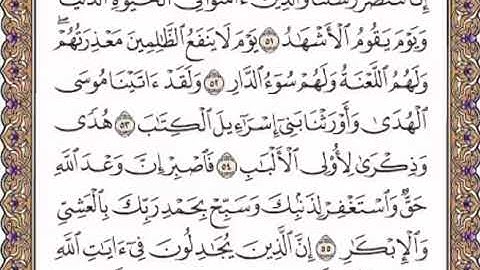 إِنَّا لَنَنصُرُ رُسُلَنَا وَٱلَّذِينَ ءَامَنُوا۟ فِى ٱلْحَيَوٰةِ ٱلدُّنْيَا
وَيَوْمَ يَقُومُ ٱلْأَشْهَـٰدُ ٥١ يَوْمَ لَا يَنفَعُ ٱلظَّـٰلِمِينَ مَعْذِرَتُهُمْ ۖ
وَلَهُمُ ٱللَّعْنَةُ وَلَهُمْ سُوٓءُ ٱلدَّارِ ٥٢ وَلَقَدْ ءَاتَيْنَا مُوسَى
ٱلْهُدَىٰ وَأَوْرَثْنَا بَنِىٓ إِسْرَٰٓءِيلَ ٱلْكِتَـٰبَ ٥٣ هُدًى
وَذِكْرَىٰ لِأُو۟لِى ٱلْأَلْبَـٰبِ ٥٤ فَٱصْبِرْ إِنَّ وَعْدَ ٱللَّهِ
حَقٌّ وَٱسْتَغْفِرْ لِذَنۢبِكَ وَسَبِّحْ بِحَمْدِ رَبِّكَ بِٱلْعَشِىِّ
وَٱلْإِبْكَـٰرِ ٥٥ إِنَّ ٱلَّذِينَ يُجَـٰدِلُونَ فِىٓ ءَايَـٰتِ ٱللَّهِ